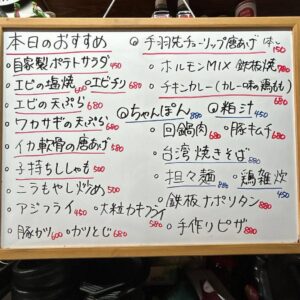 本日のおすすめ
○自家製ポテトサラダ 450
○エビの塩焼 600 ○エビチリ 680
○エビの天ぷら 680
○ワカサギの天ぷら 580
○イカ軟骨の唐あげ 580
○子持ちししゃも 500
○ニラもやし炒め 500
○アジフライ 450 ○大粒カキフライ 580
○豚ガリ 600 ○ガリとじ 680
○手羽先チューリップ唐あげ 150
○ホルモンMIX 鉄板焼 780
○チキンカレー(カレー味の鶏もも) 680
○ちゃんぽん 880 ○粕汁 450
○回鍋肉 680 ○豚キムチ 680
○台湾焼きそば 880
○担々麺 880 ○鶏雑炊 650
○鉄板ナポリタン 880
○手作りピザ 680